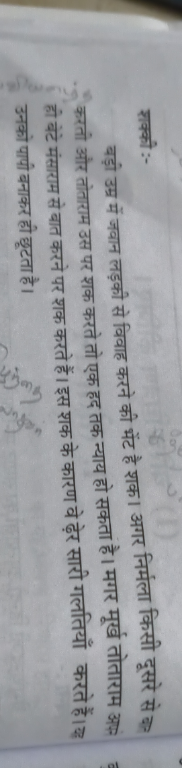 शक्की :-
बड़ी उम्र में जवान लड़की से विवाह करने की भेंट है शक। अगर निर्मला किसी दूसरे से बा
करती और तोताराम उस पर शक करते तो एक हद तक न्याय हो सकता है। मगर मूर्ख तोताराम अप
ही बेटे मंसाराम से बात करने पर शक करते हैं। इस शक के कारण वे ढ़ेर सारी गलतियाँ करते हैं।
उनको पापी बनाकर ही छूटता है।